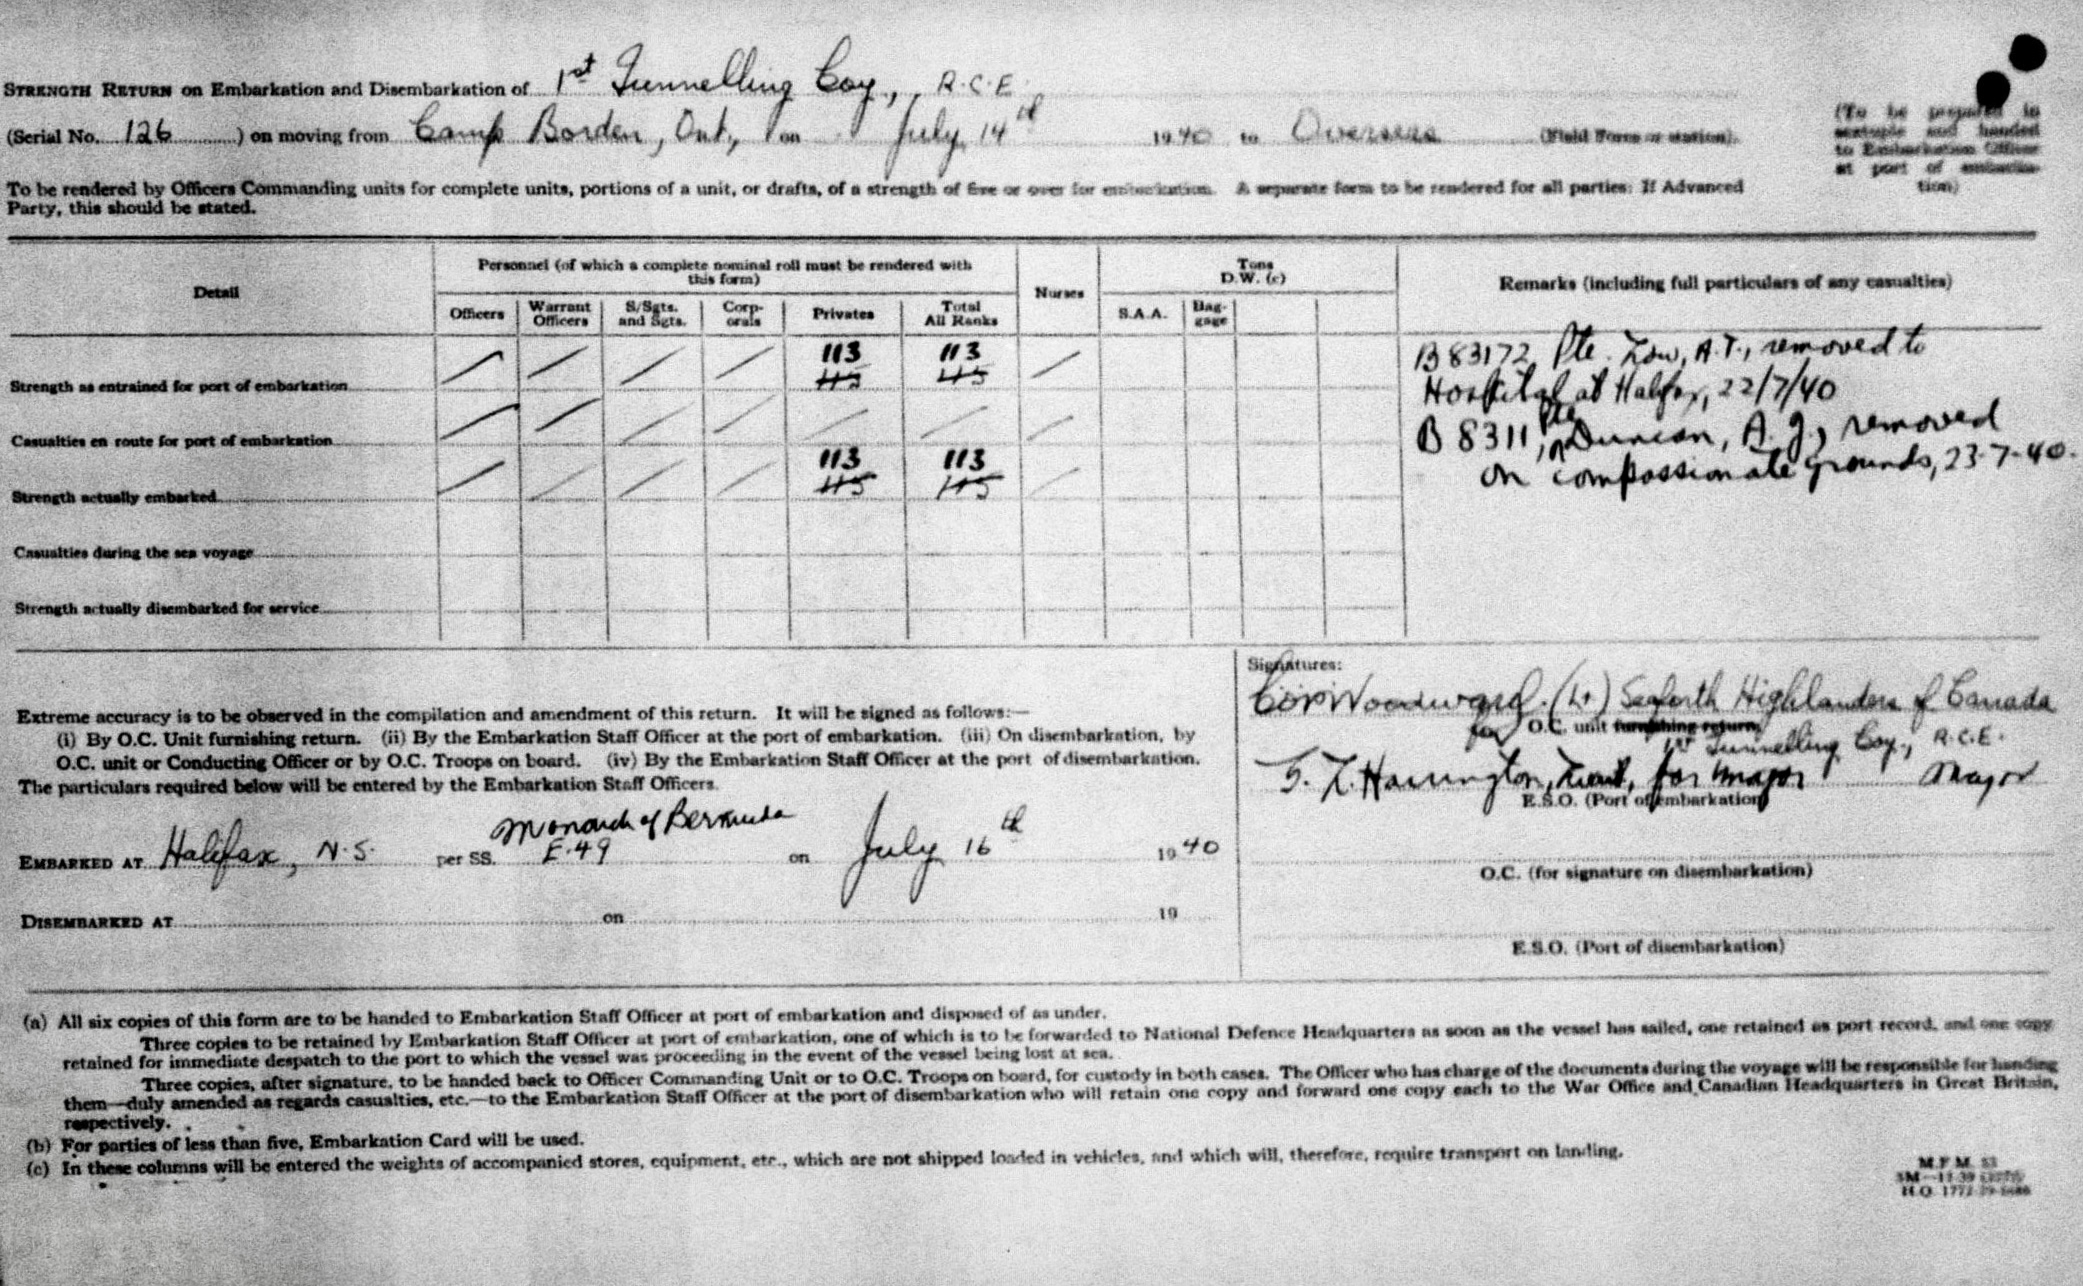 STRENGTH RETURN on Embarkation and Disembarkation of 1st Tunnelling Coy., R.C.E.
(Serial No. 126 ) on moving from Camp Borden, Ont., on July 14th 1940 to Overseas (Field Force or station).
(To be prepared in
sextuple and handed
to Embarkation Officer
at port of embarka-
tion)
To be rendered by Officers Commanding units for complete units, portions of a unit, or drafts, of a strength of five or over for embarkation. A separate form to be rendered for all parties: If Advanced
Party, this should be stated.
Detail
Personnel (of which a complete nominal roll must be rendered with
this form)
Officers
Warrant
Officers
S/Sgts.
and Sgts.
Corp-
orals
Privates
Total
All Ranks
Nurses
Tons
D.W. (c)
S.A.A.
Bag-
gage
Remarks (including full particulars of any casualties)
113 113
Strength as entrained for port of embarkation 115 115
Casualties en route for port of embarkation
113 113
Strength actually embarked 115 115
Casualties during the sea voyage
Strength actually disembarked for service
B 83172 Pte. Low, A.T., removed to
Hospital at Halifax, 22/7/40
B 8311, Pte Duncan, A.J., removed
on compassionate grounds, 23-7-40.
Extreme accuracy is to be observed in the compilation and amendment of this return. It will be signed as follows:—
(i) By O.C. Unit furnishing return. (ii) By the Embarkation Staff Officer at the port of embarkation. (iii) On disembarkation, by
O.C. unit or Conducting Officer or by O.C. Troops on board. (iv) By the Embarkation Staff Officer at the port of disembarkation.
The particulars required below will be entered by the Embarkation Staff Officers.
Monarch of Bermuda
EMBARKED AT Halifax, N.S. per SS. E-49 on July 16th 1940
DISEMBARKED AT on 19
Signatures:
Woodward. (Lt) Seaforth Highlanders of Canada
for O.C. unit furnishing return
1st Tunnelling Coy., R.C.E.
Harrington, Lieut, for Major Major
E.S.O. (Port of embarkation)
O.C. (for signature on disembarkation)
E.S.O. (Port of disembarkation)
(a) All six copies of this form are to be handed to Embarkation Staff Officer at port of embarkation and disposed of as under.
Three copies to be retained by Embarkation Staff Officer at port of embarkation, one of which is to be forwarded to National Defence Headquarters as soon as the vessel has sailed, one retained as port record, and one copy
retained for immediate despatch to the port to which the vessel was proceeding in the event of the vessel being lost at sea.
Three copies, after signature, to be handed back to Officer Commanding Unit or to O.C. Troops on board, for custody in both cases. The Officer who has charge of the documents during the voyage will be responsible for handing
them—duly amended as regards casualties, etc.—to the Embarkation Staff Officer at the port of disembarkation who will retain one copy and forward one copy each to the War Office and Canadian Headquarters in Great Britain,
respectively.
(b) For parties of less than five, Embarkation Card will be used.
(c) In these columns will be entered the weights of accompanied stores, equipment, etc., which are not shipped loaded in vehicles, and which will, therefore, require transport on landing.
M.F.M. 53
H.Q. 1772